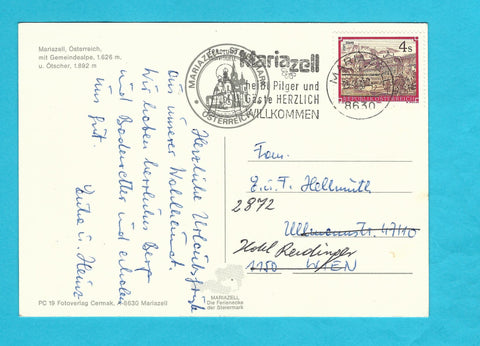 Mariazell, Österreich,
mit Gemeindealpe, 1.626 m,
u. Ötscher, 1.892 m
Herzliche Urlaubsgrüße
aus unserer Wahlheimat.
Wir haben herrliches Berg-
und Badewetter und erholen
uns gut.
Erika u. Heinz
PC 19 Fotoverlag Cermak, A-8630 Mariazell
MARIAZELL
ÖSTERREICH
Mariazell
heißt Pilger und
Gäste HERZLICH
WILLKOMMEN
8630
4 S
REPUBLIK ÖSTERREICH
Fam.
E. u. T. Hellmuth
2872
Ullmannstr. 47/10
Hotel Reidinger
1150 WIEN
MARIAZELL
Die Ferienecke
der Steiermark